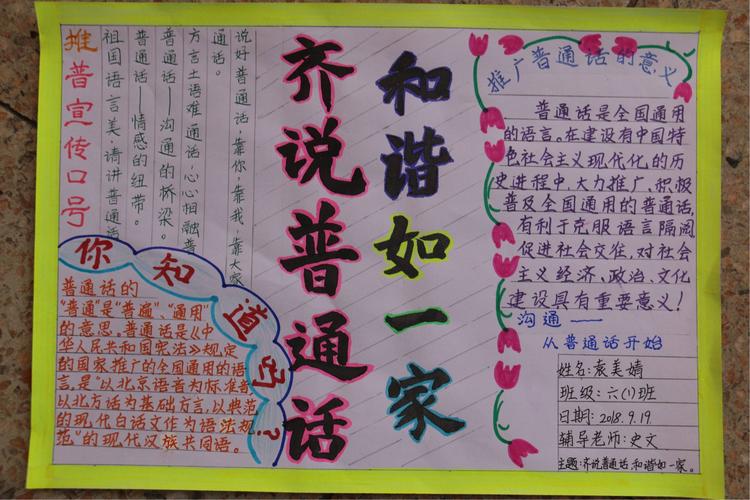 齐说普通话
和谐如一家
推普宣传口号
说好普通话，靠你，靠我，靠大家
通话。
方言土语难通话，心心相融普
普通话——沟通的桥梁。
普通话——情感的纽带。
祖国语言美，请讲普通话
你知道吗？
普通话的
“普通”是“普遍”、“通用”
的意思。普通话是《中
华人民共和国宪法》规定
的国家推广的全国通用的语
言，是“以北京语音为标准音
以北方话为基础方言，以典范
的现代白话文作为语法规
范”的现代汉族共同语。
推广普通话的意义
普通话是全国通用
的语言。在建设有中国特
色社会主义现代化的历
史进程中，大力推广、积极
普及全国通用的普通话，
有利于克服语言隔阂，
促进社会交往，对社会
主义经济、政治、文化
建设具有重要意义！
沟通——
从普通话开始
姓名：袁美婧
班级：六(1)班
日期：2018.9.19.
辅导老师：史文
主题：齐说普通话，和谐如一家。